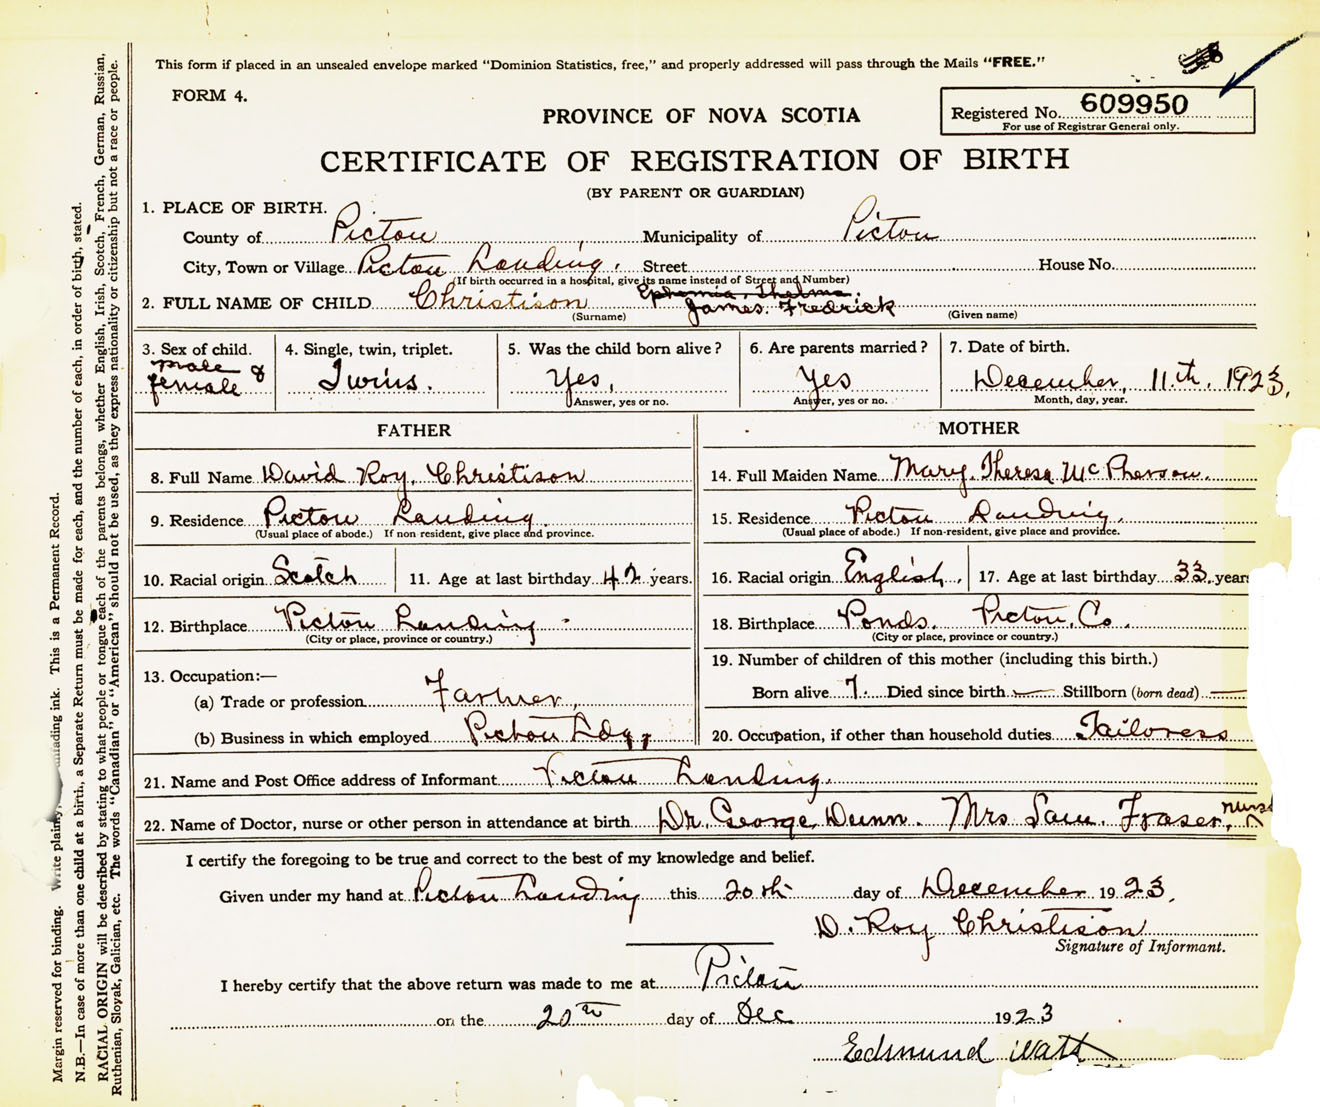 This form if placed in an unsealed envelope marked "Dominion Statistics, free," and properly addressed will pass through the Mails "FREE."
FORM 4.
PROVINCE OF NOVA SCOTIA
Registered No. 609950
For use of Registrar General only.
CERTIFICATE OF REGISTRATION OF BIRTH
(BY PARENT OR GUARDIAN)
1. PLACE OF BIRTH.
County of Pictou Municipality of Pictou
City, Town or Village Pictou Landing. Street House No.
(If birth occurred in a hospital, give its name instead of Street and Number)
Ephemia, Thelma.
2. FULL NAME OF CHILD Christison James. Fredrick
(Surname) (Given name)
3. Sex of child. male & female
4. Single, twin, triplet. Twins.
5. Was the child born alive? Yes, Answer, yes or no.
6. Are parents married? Yes Answer, yes or no.
7. Date of birth. December, 11th, 1923, Month, day, year.
FATHER
8. Full Name David Roy. Christison
9. Residence Pictou Landing.
(Usual place of abode.) If non resident, give place and province.
10. Racial origin Scotch 11. Age at last birthday 42 years.
12. Birthplace Pictou Landing
(City or place, province or country.)
13. Occupation:—
(a) Trade or profession Farmer,
(b) Business in which employed Pictou Ldg,
MOTHER
14. Full Maiden Name Mary. Theresa McPherson.
15. Residence Pictou Landing.
(Usual place of abode.) If non-resident, give place and province.
16. Racial origin English, 17. Age at last birthday 33 years
18. Birthplace Ponds. Pictou, Co.
(City or place, province or country.)
19. Number of children of this mother (including this birth.)
Born alive 7. Died since birth — Stillborn (born dead) —
20. Occupation, if other than household duties Tailoress
21. Name and Post Office address of Informant Pictou Landing.
22. Name of Doctor, nurse or other person in attendance at birth Dr. George Dunn. Mrs Sam. Fraser, nurse
I certify the foregoing to be true and correct to the best of my knowledge and belief.
Given under my hand at Pictou Landing this 20th day of December 1923,
D. Roy Christison
Signature of Informant.
I hereby certify that the above return was made to me at Pictou
on the 20th day of Dec 1923
Edmund Watt
Margin reserved for binding. Write plainly, unfading ink. This is a Permanent Record.
N.B.—In case of more than one child at a birth, a Separate Return must be made for each, and the number of each, in order of birth, stated.
RACIAL ORIGIN will be described by stating to what people or tongue each of the parents belongs, whether English, Irish, Scotch, French, German, Russian,
Ruthenian, Slovak, Galician, etc. The words "Canadian" or "American" should not be used, as they express nationality or citizenship but not a race or people.